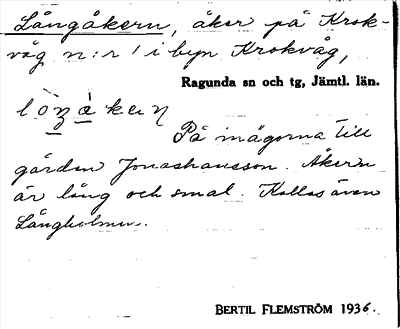 Långåkern, åker på Krok-
våg n:r 1 i byn Krokvåg,
Ragunda sn och tg, Jämtl. län.
På inägorna till
gården Jonashansson. Åkern
är lång och smal. Kallas även
Långholmen.
BERTIL FLEMSTRÖM 1936.